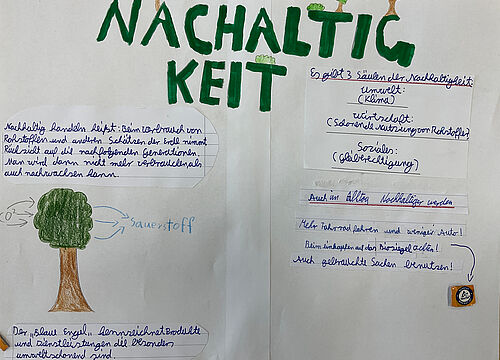 NACHALTIG
KEIT
Nachhaltig handeln heißt: Beim Verbrauch von
Rohstoffen und anderen Schätzen der Erde nimmt
Rücksicht auf die nachfolgenden Generationen.
Man wird dann nicht mehr verbrauchen als
auch nachwachsen kann.
Sauerstoff
Der „Blaue Engel„ kennzeichnet Produkte
und Dienstleistungen die besonders
umweltschonend sind.
Es gibt 3 Säulen der Nachhaltigkeit:
Umwelt:
(Klima)
Wirtschaft:
(Schonende Nutzung von Rohstoffen)
Soziales:
(Glaberechtigung)
Auch im Alltag Nachhaltiger werden
Mehr Fahrrad fahren und weniger Auto!
Beim einkaufen auf das Biosiegel achten!
Auch gebrauchte Sachen benutzen!